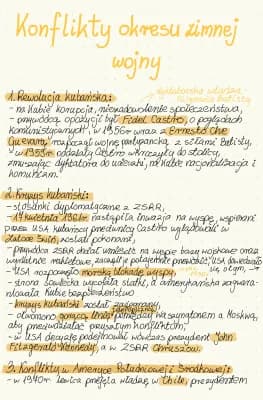 Konflikty okresu zimnej
wojny
dyktatorska władza
Fulgencio Batisty
1. Rewolucja kubańska:
- na Kubie korupcja, niezadowolenie społeczeństwa,
- przywódcą opozycji był Fidel Castro, o poglądach
komunistycznych, w 1956r wraz z Ernesto Che
Guevarą, rozpoczął wojnę partyzancką z siłami Batisty,
- w 1959r oddziały Castro wkroczyły do stolicy,
zmuszając dyktatora do ucieczki, na Kubie nacjonalizacja i
komunizm.
2. Kryzys kubański:
- stosunki dyplomatyczne z ZSRR,
- 17 kwietnia 1961r nastąpiła inwazja na wyspę, wspierani
przez USA kubańscy przeciwnicy Castro wylądowali w
Zatoce Świń, zostali pokonani,
- przywódca ZSRR zaczął umieszczać na wyspie bazy wojskowe oraz
wyrzutnie rakietowe, zaczął
- USA rozpoczęło morską blokadę wyspy,
- strona sowiecka wycofała statki, a amerykańska zagwara-
ntowała Kubie bezpieczeństwo
- kryzys kubański został zażegnany,
telefoniczną
- otworzono gorącą linię pomiędzy Waszyngtonem a Moskwą,
aby przeciwdziałać przyszłym konfliktom,
- w USA decyzję podejmował wówczas prezydent John
Fitzgerald Kennedy, a w ZSRR Chruszczow.
3. Konflikty w Ameryce Południowej i Środkowej:
- w 1970r lewica przejęła władzę w Chile, prezydentem